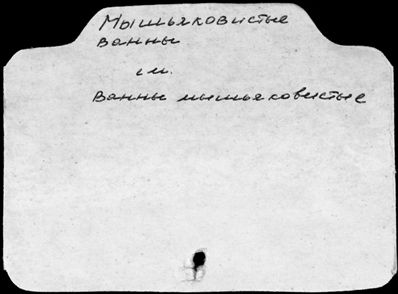 Мышьяковистые
ванны
см.
Ванны мышьяковистые